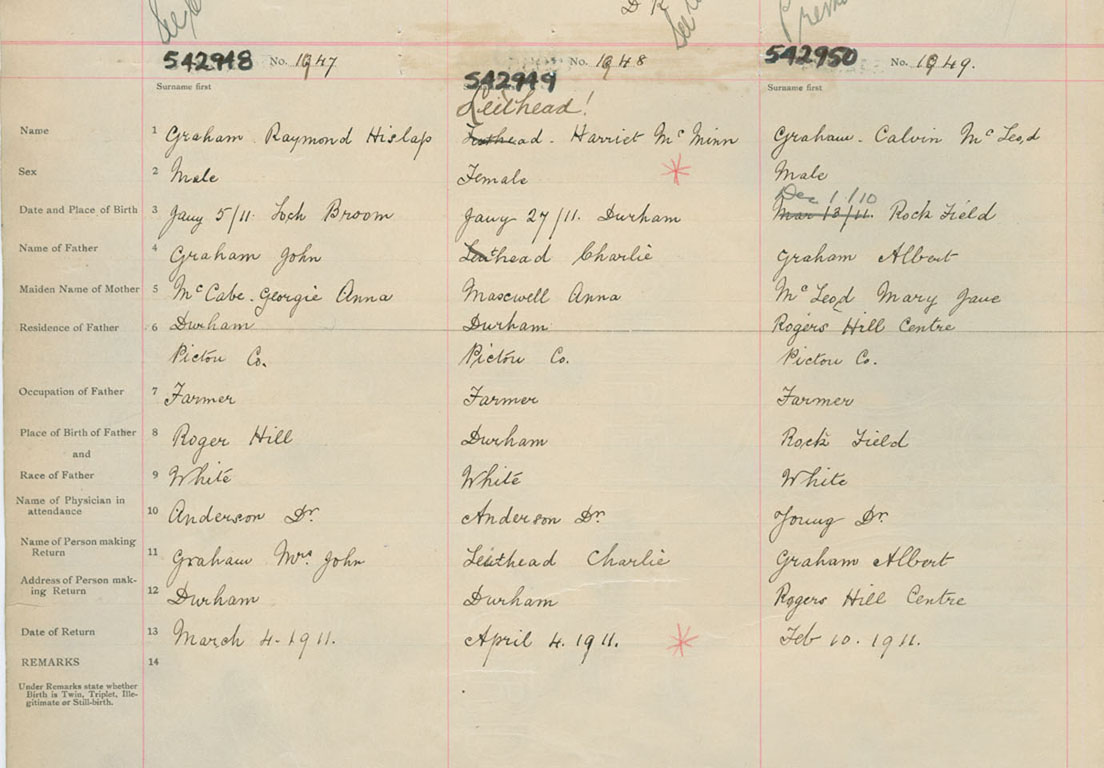 542948 No. 1947 542949 No. 1948 542950 No. 1949.
Surname first Surname first
Leithead!
Name 1 Graham Raymond Hislop head. Harriet Mc Minn Graham. Calvin McLeod
Sex 2 Male Female Male
Dec 1/10
Date and Place of Birth 3 Jany 5/11. Loch Broom Jany 27/11. Durham Mar 13/11. Rock Field
Name of Father 4 Graham John Leithead Charlie Graham Albert
Maiden Name of Mother 5 McCabe. Georgie Anna Maxwell Anna McLeod Mary Jane
Residence of Father 6 Durham Durham Rogers Hill Centre
Pictou Co. Pictou Co. Pictou Co.
Occupation of Father 7 Farmer Farmer Farmer
Place of Birth of Father 8 Roger Hill Durham Rock Field
and
Race of Father 9 White White White
Name of Physician in
attendance 10 Anderson Dr. Anderson Dr Young Dr.
Name of Person making
Return 11 Graham Mrs. John Leithead Charlie Graham Albert
Address of Person mak-
ing Return 12 Durham Durham Rogers Hill Centre
Date of Return 13 March 4-1911. April 4. 1911. Feb 10. 1911.
REMARKS 14
Under Remarks state whether
Birth is Twin, Triplet, Ille-
gitimate or Still-birth.